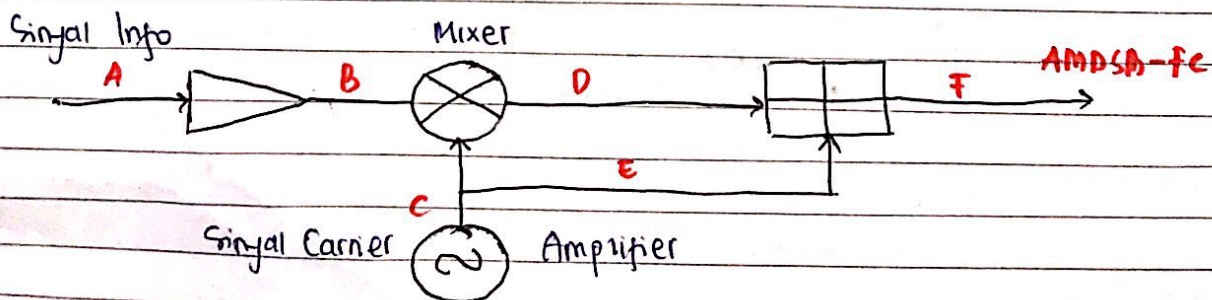 Sinyal Info
Mixer
A
B
D
F
AMDSB-fc
E
C
Sinyal Carrier
Amplifier